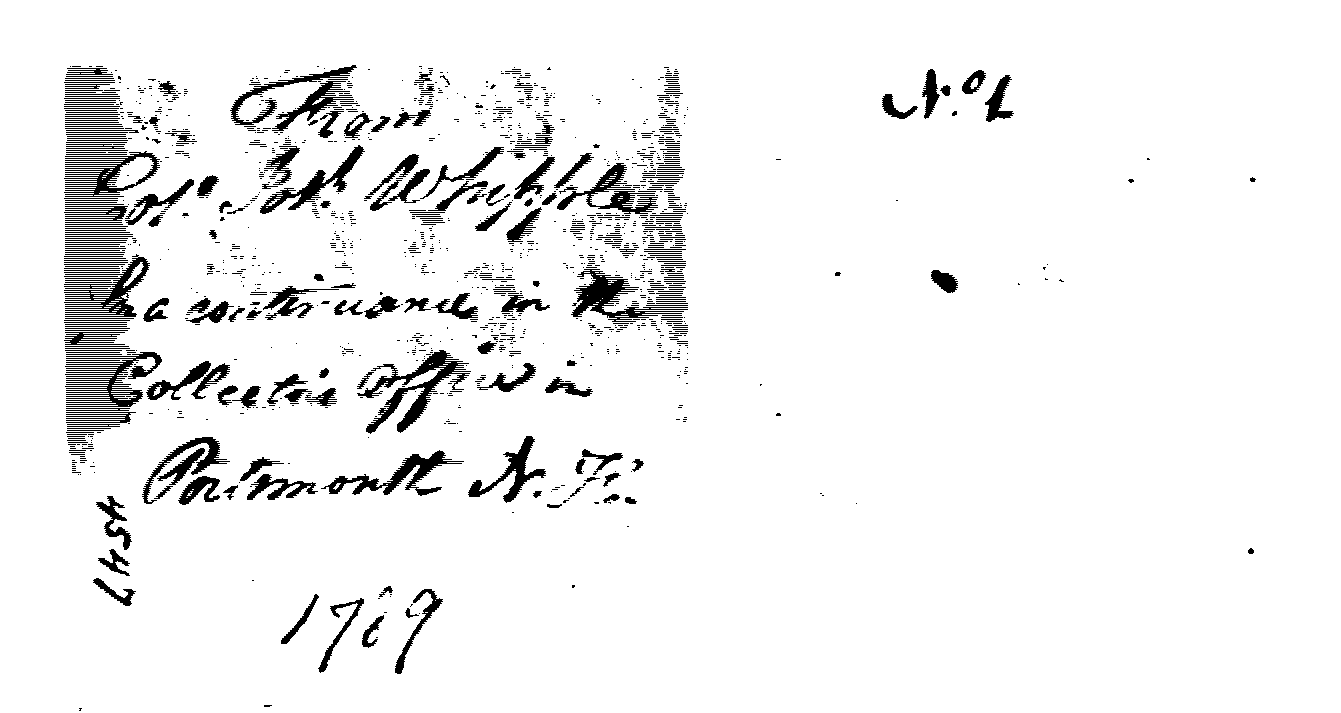 From
Colo. Josh. Whipple
for a continuance in the
Collectors Office in
Portsmouth N. H.
4547
1789
No. 1